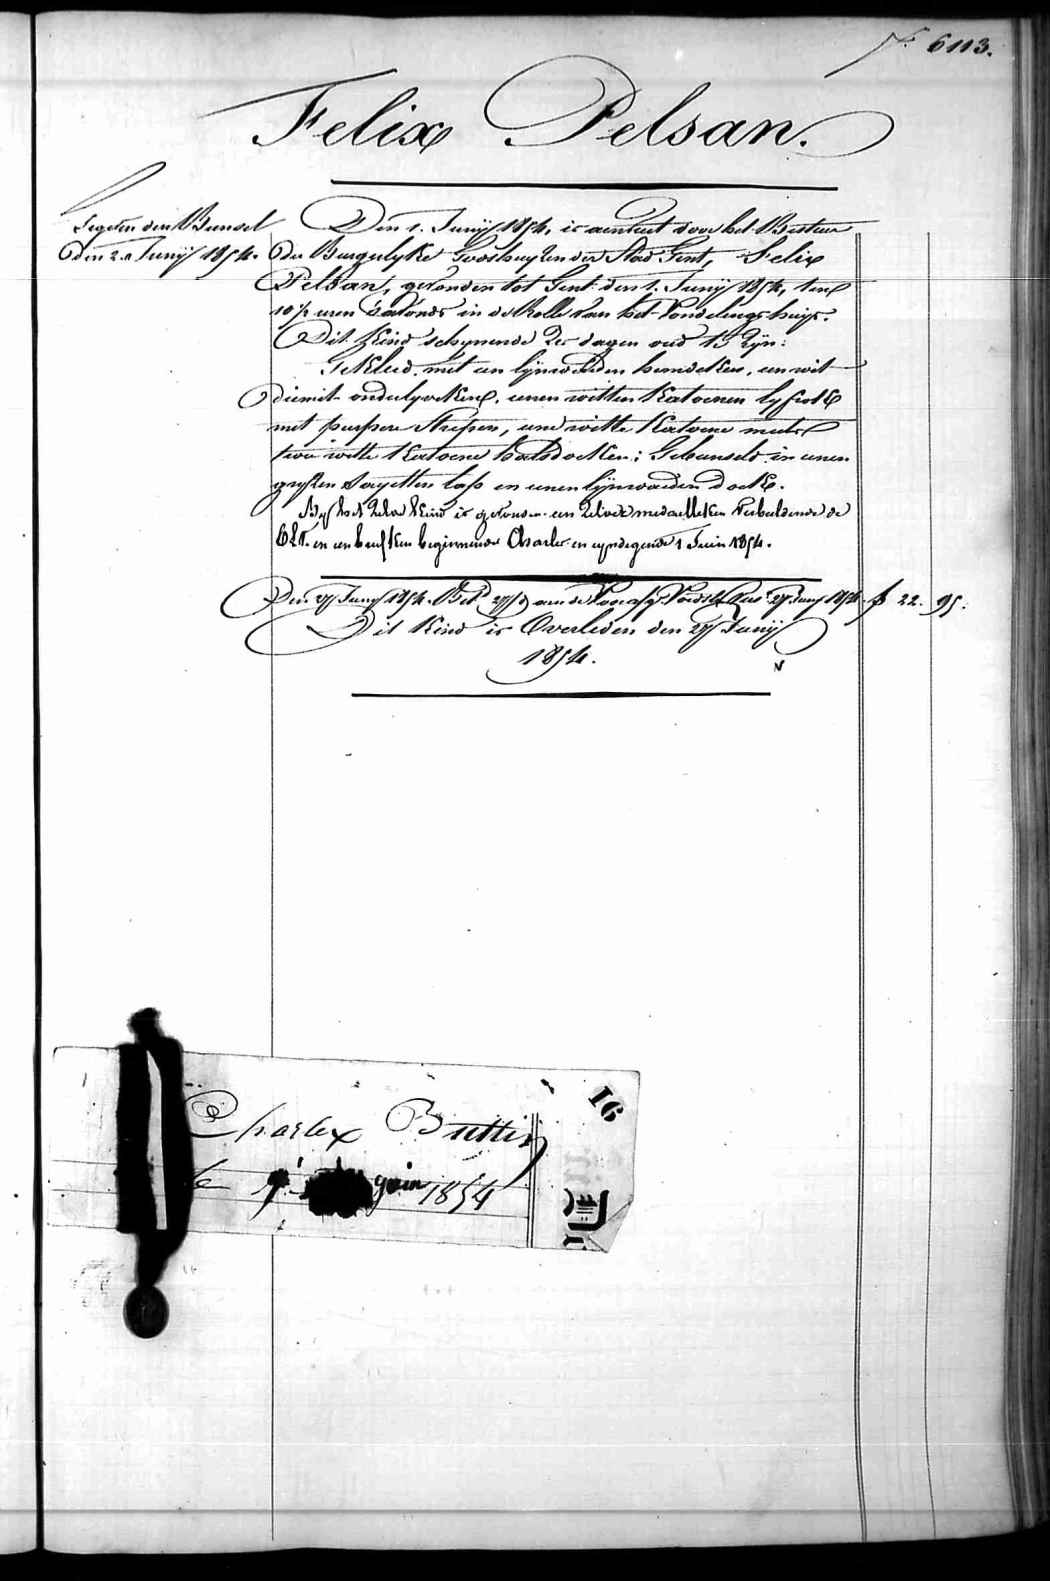 N.º 6113.
Felix Pelsan.
Gegeven den Bunsel
den 2.n Junij 1854.
Den 1. Junij 1854, is aenveert door het Bestuer
der Burgerlyke Godshuyzen der Stad Gent, Felix
Pelsan, gevonden tot Gent den 1. Junij 1854, ten
10 1/2 uren s'avonds in de Rolle van het Vondelingshuys.
Dit Kind schynende Zes dagen oud te Zyn:
Gekleed met een lynwaeden hemdeken, een wit
diemit onderlyveken, eenen witten Katoenen lyfrok
met purpere Strepen, eene witte Katoene muts
twee witte Katoene halsdoeken; Gebunseld in eenen
gryzen Sayetten lap en eenen lynwaeden doek.
By het Zelve Kind is gevonden een Zilver medaelleken Verbeeldende de
O.L.V. en een briefken beginnende Charles en eyndigende 1 Juin 1854.
Den 27 Junij 1854. Bet.d aen de 27 Junij 1854. f 22. 95.
Dit Kind is Overleden den 27 Junij
1854.
Charles Buttin
le 1 juin 1854
16